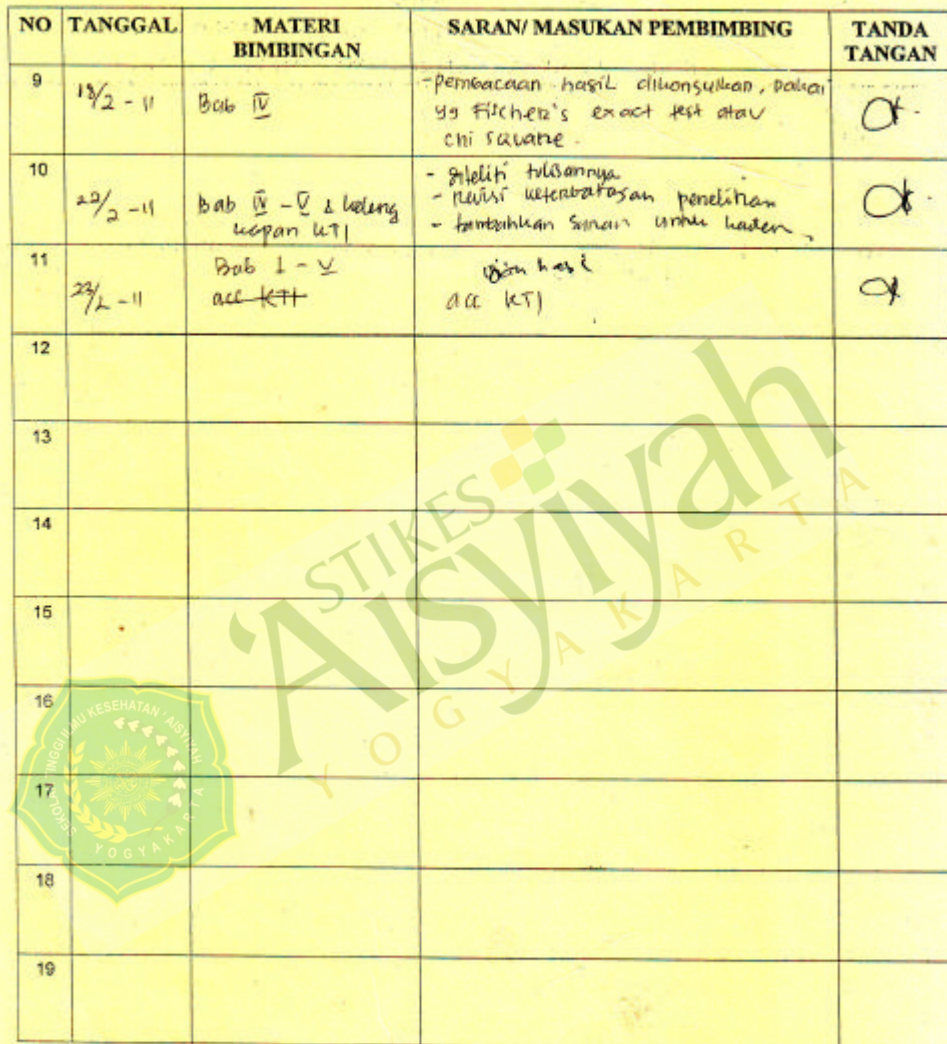 NO TANGGAL MATERI BIMBINGAN SARAN/ MASUKAN PEMBIMBING TANDA TANGAN
9 18/2 - 11 Bab IV
- pembacaan hasil dikonsulkan, pakai
yg Fischer's exact test atau
chi square.
10 22/2 - 11 Bab IV - V & keleng
kapan KTI
- diteliti tulisannya
- revisi keterbatasan penelitian
- tambahkan saran untuk kader
11 23/2 - 11 Bab I - V
acc KTI
ujian hasil
acc KTI
12
13
14
15
16
17
18
19
STIKES
'Aisyiyah
YOGYAKARTA
SEKOLAH TINGGI ILMU KESEHATAN 'AISYIYAH
YOGYAKARTA